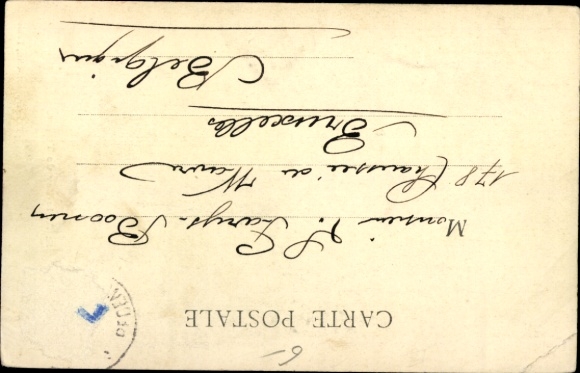 CARTE POSTALE
Monsieur
178 Chaussée de Wavre
Bruxelles
Belgique